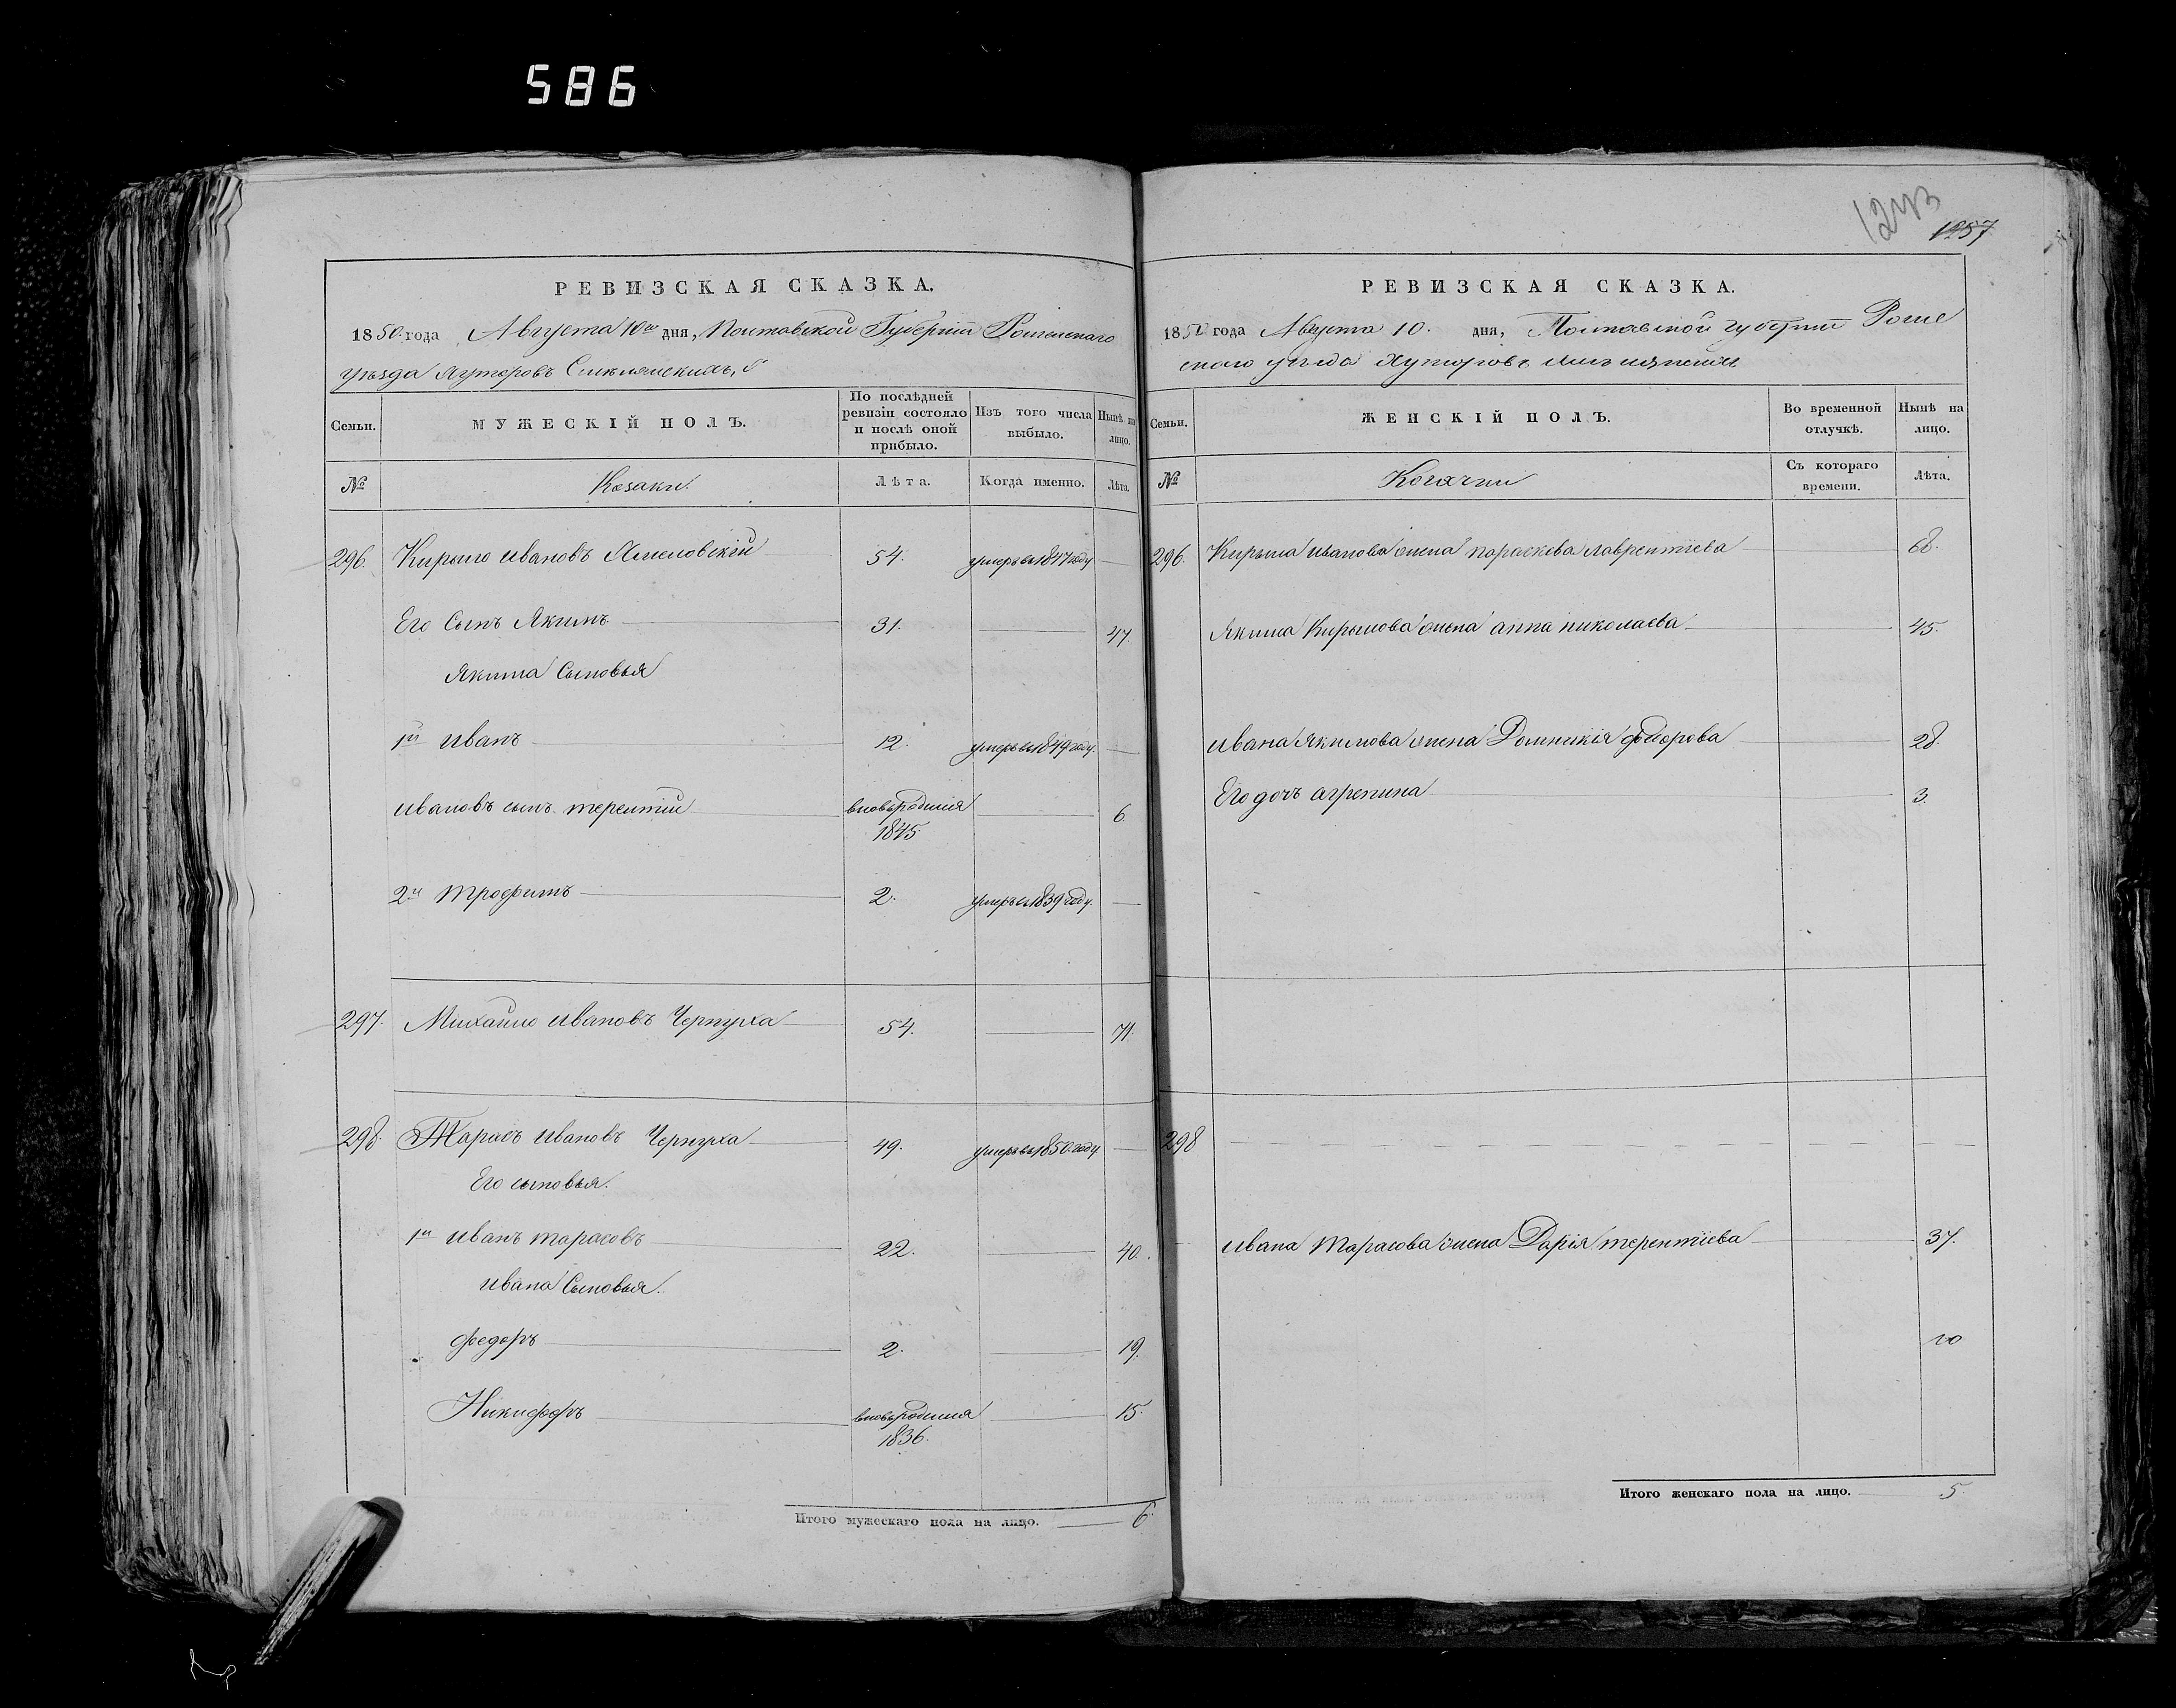 586
1243
1257
РЕВИЗСКАЯ СКАЗКА.
1850 года Августа 10го дня, Полтавской Губернии Роменскаго
уѣзда Хуторовъ
Семьи.
МУЖЕСКІЙ ПОЛЪ.
По послѣдней ревизіи состояло и послѣ оной прибыло.
Изъ того числа выбыло.
Нынѣ на лицо.
№
Козаки.
Лѣта.
Когда именно.
Лѣта.
296. Кирыло Ивановъ 54. умеръ въ 1847 году
Его Сынъ Якимъ 31. 47.
Якима Сыновья
1й Иванъ 12. умеръ въ 1849 году.
Ивановъ сынъ терентій вновьродился 1845 6.
2й трофимъ 2. умеръ въ 1839 году.
297. Михайло Ивановъ Чернуха 54. 71.
298. Тарасъ Ивановъ Чернуха 49. умеръ въ 1850 году
Его сыновья.
1й Иванъ тарасовъ 22. 40.
Ивана Сыновья.
федоръ 2. 19.
Никифоръ вновьродился 1836. 15.
Итого мужескаго пола на лицо. 6.
РЕВИЗСКАЯ СКАЗКА.
1850 года Августа 10. дня, Полтавской губернии Роме
нского уѣзда Хуторовъ
Семьи.
ЖЕНСКІЙ ПОЛЪ.
Во временной отлучкѣ.
Нынѣ на лицо.
№
Козачки
Съ котораго времени.
Лѣта.
296. Кирыла Иванова жена параскева лаврентіева 68.
Якима Кирылова жена анна николаева 45.
Ивана Якимова жена Домникія федорова 28.
Его дочь агрепина 3.
298
Ивана Тарасова жена Дарія терентіева 37.
10
Итого женскаго пола на лицо. 5.